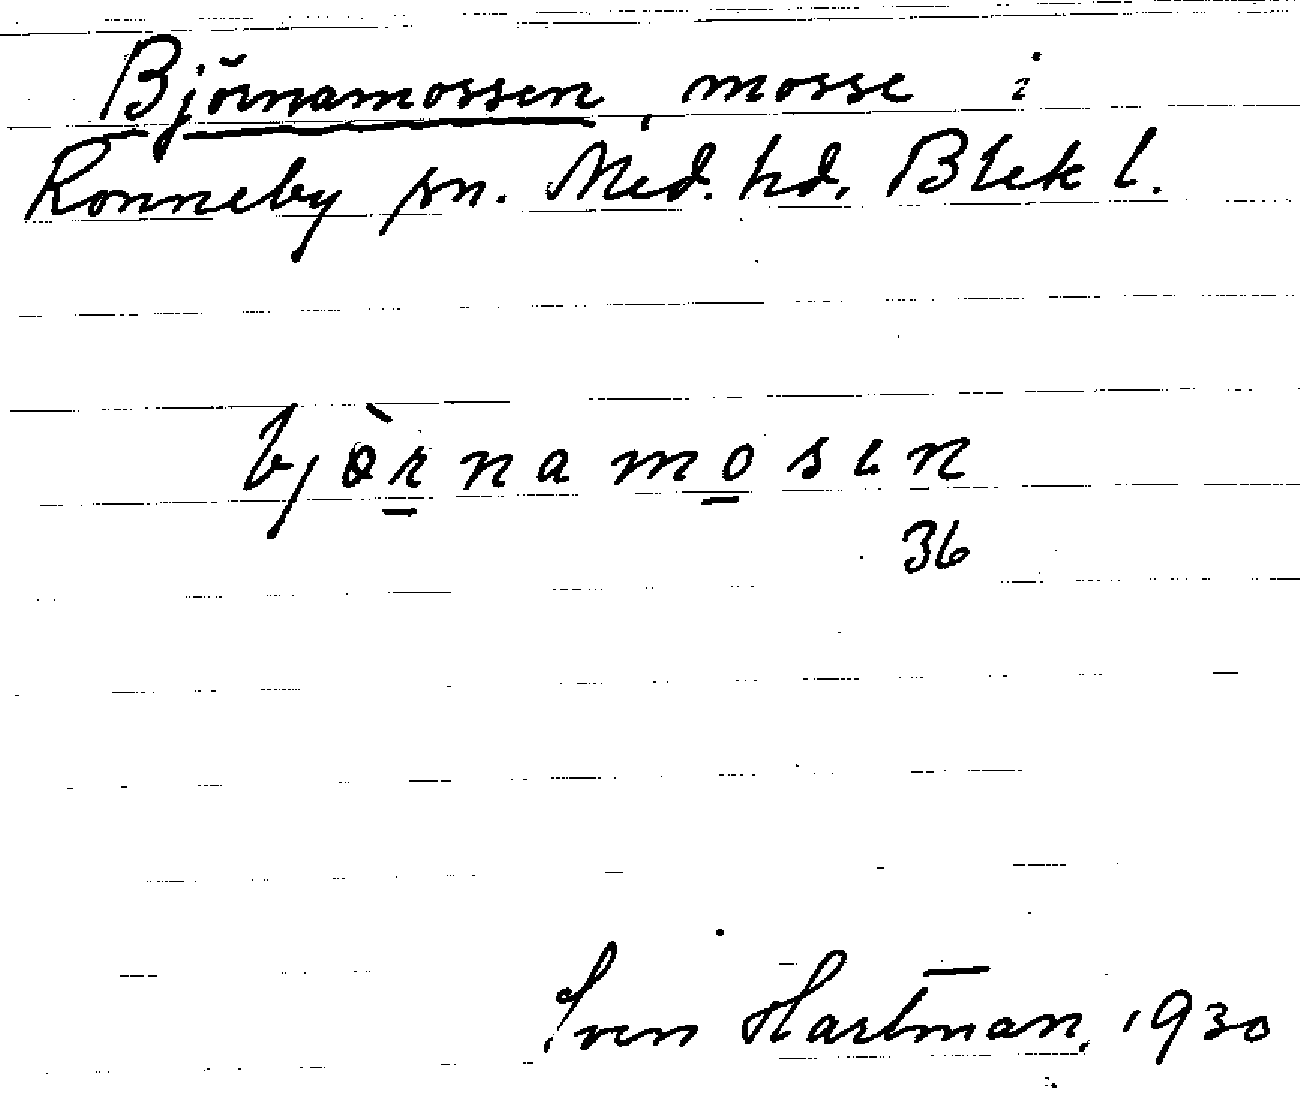 Björnamossen, mosse i
Ronneby sn. Med. hd, Blek l.
bjòrnamosen
36
Sven Hartman, 1930